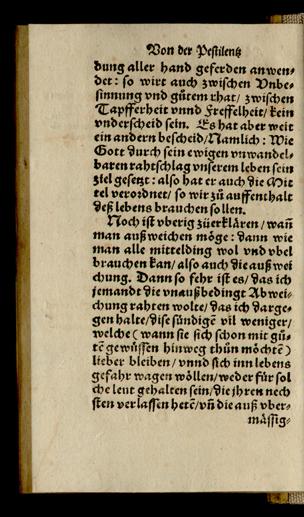 Von der Pestilentz
dung aller hand geferden anwen-
det: so wirt auch zwischen Vnbe-
sinnung vnd gůtem rhat/ zwischen
Tapfferheit vnnd Freffelheit/ kein
vnderscheid sein. Es hat aber weit
ein andern bescheid/ Namlich: Wie
Gott durch sein ewigen vnwandel-
baren rahtschlag vnserem leben sein
ziel gesetzt: also hat er auch die Mit
tel verordnet/ so wir zů auffenthalt
deß lebens brauchen sollen.
Noch ist vberig zůerklåren/ wañ
man außweichen möge: dann wie
man alle mittelding wol vnd vbel
brauchen kan/ also auch die außwei
chung. Dann so fehr ist es/ das ich
jemandt die vnaußbedingt Abwei-
chung rahten wolte/ das ich darge-
gen halte/ dise sündigẽ vil weniger/
welche (wann sie sich schon mit gů-
tẽ gewüssen hinweg thůn möchtẽ)
lieber bleiben/ vnnd sich inn lebens
gefahr wagen wöllen/ weder für sol
che leut gehalten sein/ die jhren nech
sten verlassen hetẽ/ vñ die auß vber-
mässig-